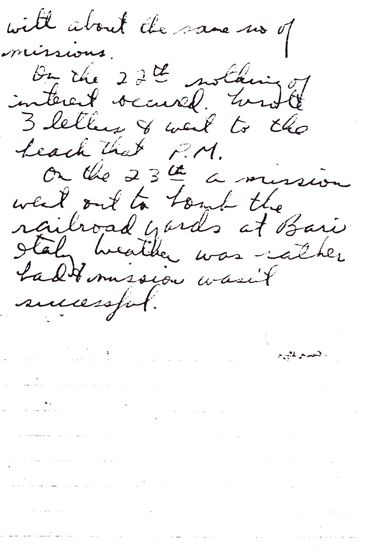 with about the same no of
missions.
On the 22th nothing of
interest occured. Wrote
3 letters & went to the
beach that P.M.
On the 23th a mission
went out to bomb the
railroad yards at Bari
Italy Weather was rather
bad & mission wasn't
successful.